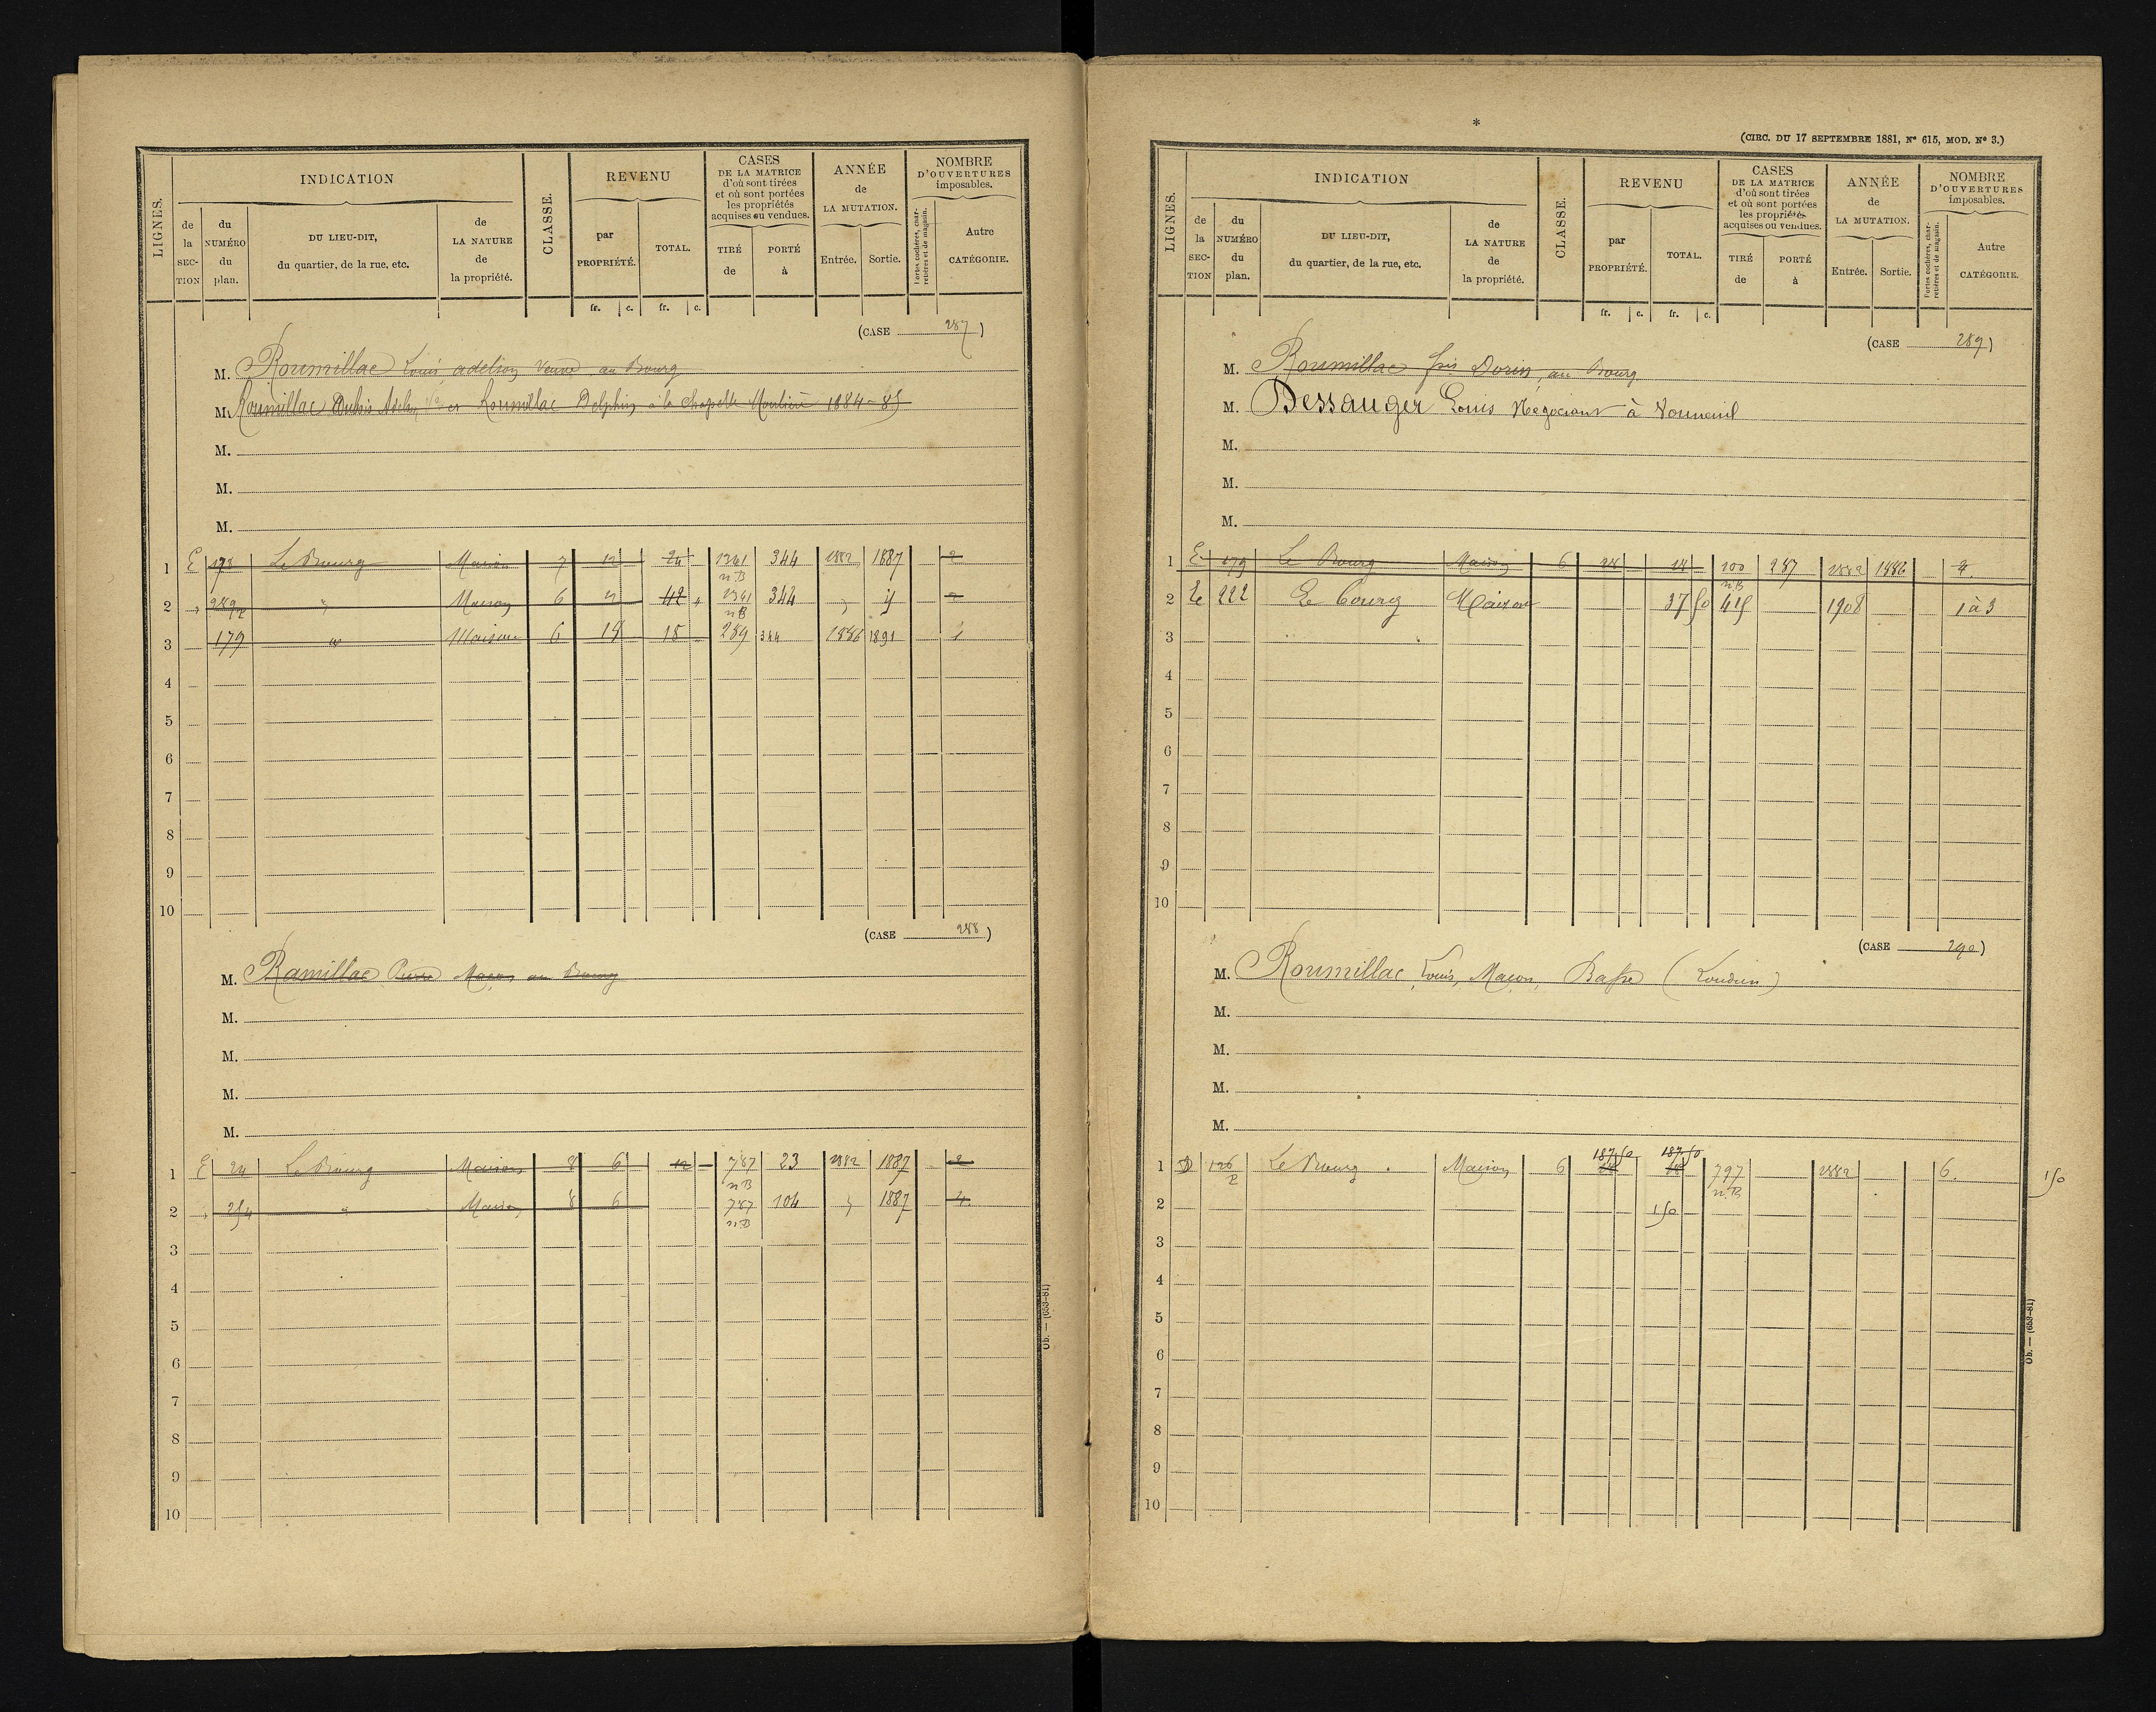 LIGNES.
INDICATION
de la SECTION
du NUMÉRO du plan.
DU LIEU-DIT, du quartier, de la rue, etc.
de LA NATURE de la propriété.
CLASSE.
REVENU
par PROPRIÉTÉ.
TOTAL.
fr. c. fr. c.
CASES DE LA MATRICE d'où sont tirées et où sont portées les propriétés acquises ou vendues.
TIRÉ de
PORTÉ à
ANNÉE de LA MUTATION.
Entrée. Sortie.
NOMBRE D'OUVERTURES imposables.
Portes cochères, charretières et de magasin.
Autre CATÉGORIE.
(CASE 287)
M. Roumillac Louis, adelin, Veuve au Bourg
M. Roumillac et Roumillac Delphin, à la Chapelle Moulière 1884-85
M.
M.
M.
1 E 178 Le Bourg Maison 7 12 24 1341 n.B 344 1882 1887 2
2 289 Maison 6 42 1341 n.B 344 2
3 179 " Maison 6 18 18 289 344 1886 1891 1
4
5
6
7
8
9
10
(CASE 288)
M. Ramillac Pierre Maçon au Bourg
M.
M.
M.
M.
1 E 24 Le Bourg Maison 8 6 12 787 n.B 23 1882 1887 2
2 254 " Maison 8 6 787 n.B 104 1887 4
3
4
5
6
7
8
9
10
Ob. — (653-81)
*
(CIRC. DU 17 SEPTEMBRE 1881, N° 615, MOD. N° 3.)
LIGNES.
INDICATION
de la SECTION
du NUMÉRO du plan.
DU LIEU-DIT, du quartier, de la rue, etc.
de LA NATURE de la propriété.
CLASSE.
REVENU
par PROPRIÉTÉ.
TOTAL.
fr. c. fr. c.
CASES DE LA MATRICE d'où sont tirées et où sont portées les propriétés acquises ou vendues.
TIRÉ de
PORTÉ à
ANNÉE de LA MUTATION.
Entrée. Sortie.
NOMBRE D'OUVERTURES imposables.
Portes cochères, charretières et de magasin.
Autre CATÉGORIE.
(CASE 289)
M. Roumillac fris Dorin, au Bourg
M. Dessauger Louis Negociant à Vouneuil
M.
M.
M.
1 E 179 Le Bourg Maison 6 18 18 100 n.B 287 1882 1886
2 E 222 Le bourg Maison 37 50 415 1908 1 à 3
3
4
5
6
7
8
9
10
(CASE 290)
M. Roumillac Louis, Maçon, Basse (Loudun)
M.
M.
M.
M.
1 D 126 Le Bourg Maison 6 187,50 187,50 797 n.B 1882 6. 150
2 150
3
4
5
6
7
8
9
10
Ob. — (653-81)